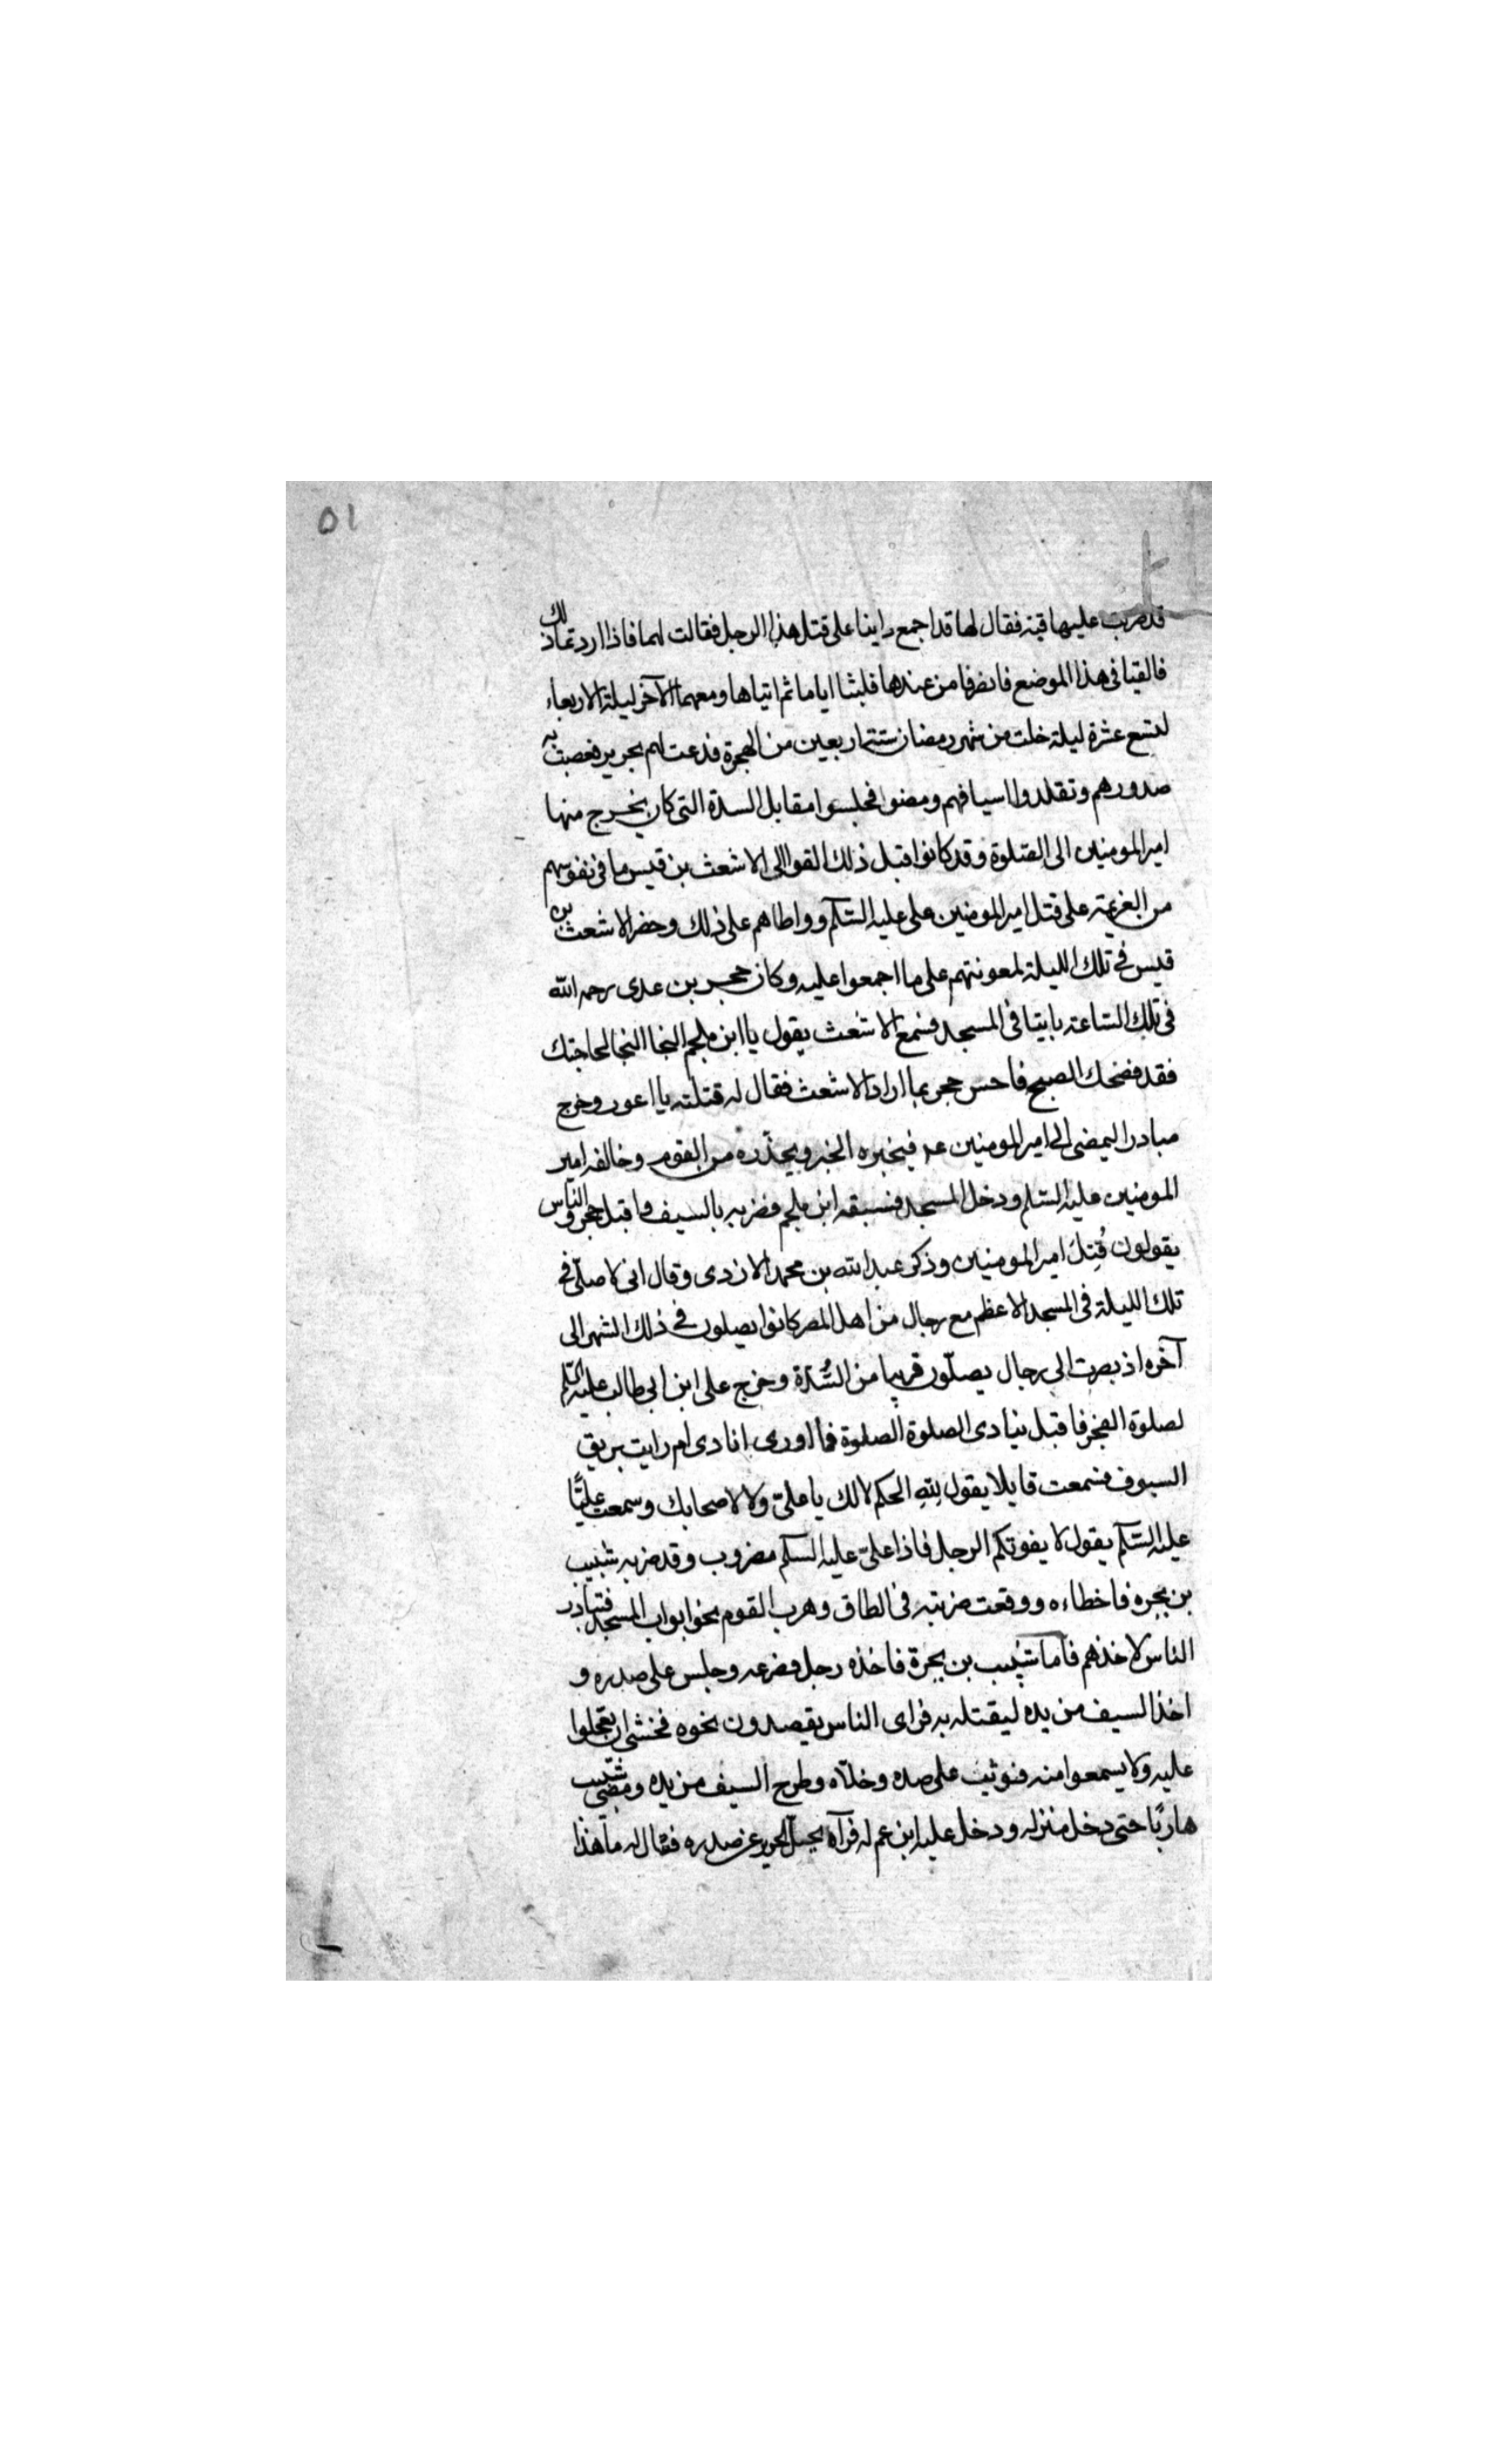 ٥١
قد ضربت عليها قبة فقال لها قد اجمع راينا على قتل هذا الرجل فقالت لهما فاذا اردتما ذلك
فالقيا فى هذا الموضع فانصرفا من عندها فلبثا اياما ثم اتياها ومعهما الآخر ليلة الاربعاء
لتسع عشرة ليلة خلت من شهر رمضان سنة اربعين من الهجرة فدعت لهم بحرير فعصبت به
صدورهم وتقلدوا اسيافهم ومضوا فجلسوا مقابل السدة التى كان يخرج منها
امير المومنين الى الصلوة وقد كانوا قبل ذلك القوا الى الاشعث بن قيس ما فى نفوسهم
من العزيمة على قتل امير المومنين على عليه السلام وواطاهم على ذلك وحضر الاشعث بن
قيس فى تلك الليلة لمعونتهم على ما اجمعوا عليه وكان حجر بن عدى رحمه الله
فى تلك الساعة بايتا فى المسجد فسمع الاشعث يقول يا ابن ملجم النجا النجا لحاجتك
فقد فضحك الصبح فاحس حجر بما اراد الاشعث فقال له قتلته يا اعور وخرج
مبادرا ليمضى الى امير المومنين عم فيخبره الخبر ويحذّره من القوم وخالفه امير
المومنين عليه السلم ودخل المسجد فسبقه ابن ملجم فضربه بالسيف واقبل حجر والناس
يقولون قُتِلَ امير المومنين وذكر عبد الله بن محمد الازدى وقال انى لاصلّى فى
تلك الليلة فى المسجد الاعظم مع رجال من اهل المصر كانوا يصلون فى ذلك الشهر الى
آخره اذ بصرت الى رجال يصلّون قريبا من السُّدّة وخرج على ابن ابى طالب عليه السلم
لصلوة الفجر فاقبل ينادى الصلوة الصلوة فما ادرى انادى ام رايت بريق
السيوف فسمعت قايلا يقول لِلّهِ الحكم لا لك يا علىّ ولا لاصحابك وسمعت عليًّا
عليه السلام يقول لا يفوتكم الرجل فاذا علىّ عليه السلم مضروب وقد ضربه شبيب
بن بجره فاخطاءه ووقعت ضربته فى الطاق وهرب القوم نحو ابواب المسجد فتبادر
الناس لاخذهم فاما شبيب بن بجرة فاخذه رجل فصرعه وجلس على صدره و
اخذ السيف من يده ليقتله به فراى الناس يقصدون نحوه فخشى ان يعجلوا
عليه ولا يسمعوا منه فوثب على صده وخلّاه وطرح السيف من يده ومضى شبيب
هاربًا حتى دخل منزله ودخل عليه ابن عم له فرآه يحلّ الحرير عن صدره فقال له ما هذا